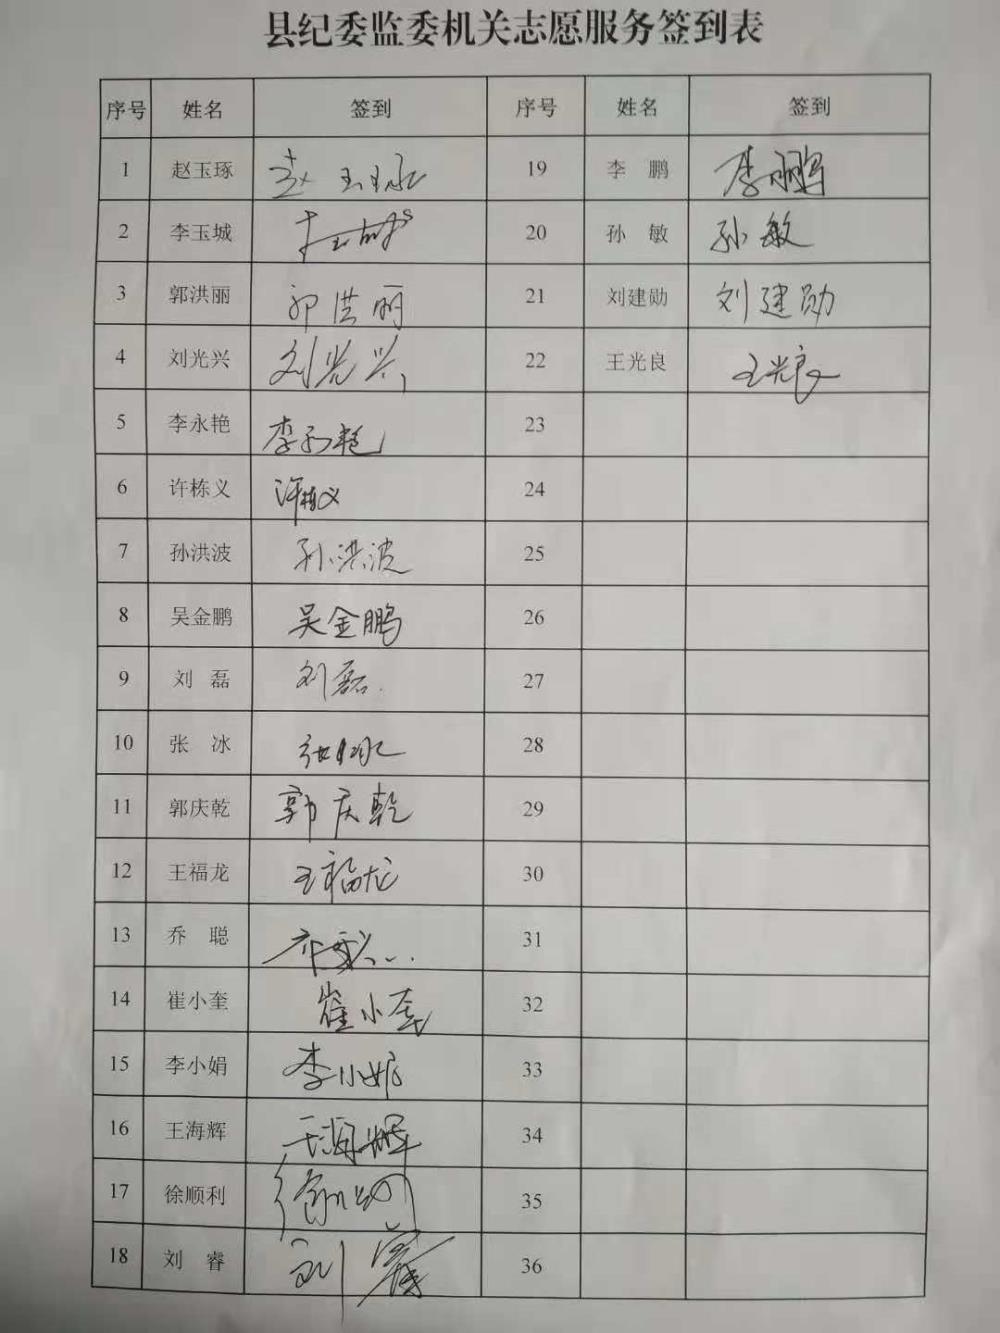 县纪委监委机关志愿服务签到表
序号 姓名 签到 序号 姓名 签到
1 赵玉琢 赵玉琢 19 李 鹏 李鹏
2 李玉城 20 孙 敏 孙敏
3 郭洪丽 郭洪丽 21 刘建勋 刘建勋
4 刘光兴 刘光兴 22 王光良 王光良
5 李永艳 李永艳 23
6 许栋义 许栋义 24
7 孙洪波 孙洪波 25
8 吴金鹏 吴金鹏 26
9 刘 磊 刘磊 27
10 张 冰 张冰 28
11 郭庆乾 郭庆乾 29
12 王福龙 王福龙 30
13 乔 聪 乔聪 31
14 崔小奎 崔小奎 32
15 李小娟 李小娟 33
16 王海辉 王海辉 34
17 徐顺利 35
18 刘 睿 刘睿 36